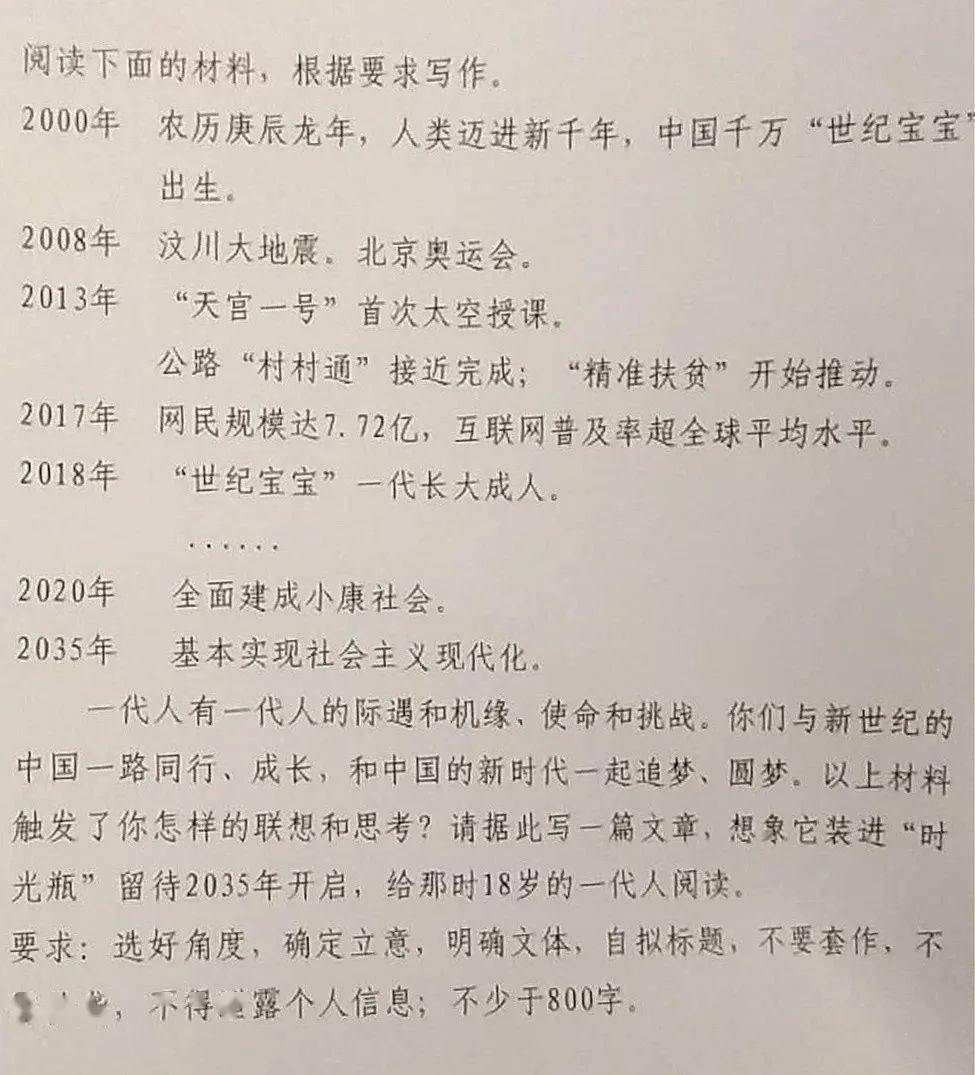 阅读下面的材料，根据要求写作。
2000年 农历庚辰龙年，人类迈进新千年，中国千万“世纪宝宝”
出生。
2008年 汶川大地震。北京奥运会。
2013年 “天宫一号”首次太空授课。
公路“村村通”接近完成；“精准扶贫”开始推动。
2017年 网民规模达7.72亿，互联网普及率超全球平均水平。
2018年 “世纪宝宝”一代长大成人。
......
2020年 全面建成小康社会。
2035年 基本实现社会主义现代化。
一代人有一代人的际遇和机缘、使命和挑战。你们与新世纪的
中国一路同行、成长，和中国的新时代一起追梦、圆梦。以上材料
触发了你怎样的联想和思考？请据此写一篇文章，想象它装进“时
光瓶”留待2035年开启，给那时18岁的一代人阅读。
要求：选好角度，确定立意，明确文体，自拟标题，不要套作，不
，不得露个人信息；不少于800字。